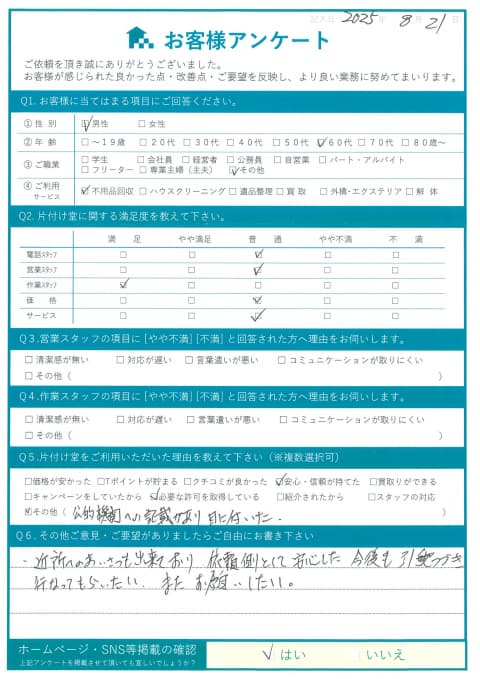 記入日 2025年 8月 21日
お客様アンケート
ご依頼を頂き誠にありがとうございました。
お客様が感じられた良かった点・改善点・ご要望を反映し、より良い業務に努めてまいります。
Q1. お客様に当てはまる項目にご回答ください。
① 性 別 ☑男性 □女性
② 年 齢 □〜19歳 □20代 □30代 □40代 □50代 ☑60代 □70代 □80歳〜
③ ご職業 □学生 □会社員 □経営者 □公務員 □自営業 □パート・アルバイト
□フリーター □専業主婦（主夫） ☑その他
④ ご利用サービス ☑不用品回収 □ハウスクリーニング □遺品整理 □買取 □外構・エクステリア □解体
Q2. 片付け堂に関する満足度を教えて下さい。
満足 やや満足 普通 やや不満 不満
電話スタッフ □ □ ☑ □ □
営業スタッフ □ □ ☑ □ □
作業スタッフ ☑ □ □ □ □
価格 □ □ ☑ □ □
サービス □ □ ☑ □ □
Q3.営業スタッフの項目に[やや不満][不満]と回答された方へ理由をお伺いします。
□清潔感が無い □対応が遅い □言葉遣いが悪い □コミュニケーションが取りにくい
□その他（ ）
Q4.作業スタッフの項目に[やや不満][不満]と回答された方へ理由をお伺いします。
□清潔感が無い □対応が遅い □言葉遣いが悪い □コミュニケーションが取りにくい
□その他（ ）
Q5.片付け堂をご利用いただいた理由を教えて下さい（※複数選択可）
□価格が安かった □Tポイントが貯まる □クチコミが良かった ☑安心・信頼が持てた □買取りができる
□キャンペーンをしていたから ☑必要な許可を取得している □紹介されたから □スタッフの対応
☑その他（ 公的機関への記載があり目に付いた。
Q6.その他ご意見・ご要望がありましたらご自由にお書き下さい
・近所へのあいさつも出来ており 依頼側として安心した 今後も引き続き
行なってもらいたい。またお願いしたい。
ホームページ・SNS等掲載の確認
上記アンケートを掲載させて頂いても宜しいでしょうか？
☑はい □いいえ